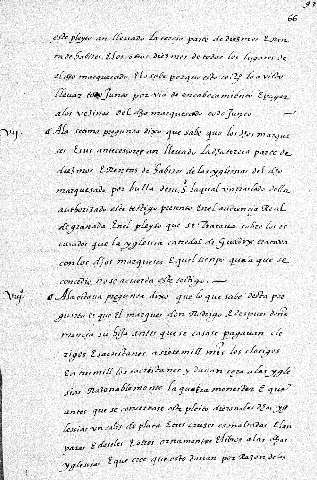 66
este pleyto an llevado la tercia parte de diezmos E Renta
de habizes. E los otros diezmos de todos los lugares de
el dho marquesado. E lo sabe porque este to los a visto
llevar todo junto por via de encabezamiento E pagar
a los vezinos del dho marquesado todo junto
vij. A la setima pregunta dixo que sabe que los dhos marqueses
E sus antecesores an llevado la dha tercia parte de
diezmos E Rentas de habizes de las yglesias del dho
marquesado por bulla de su sd la qual un traslado della
authorizado este testigo presento En el audiencia Real
de granada En el pleyto que se trataua sobre los escusados
que la yglesia catedral de Guadix trataua
con los dhos marqueses E que el tiempo que a que se
concedio no se acuerda este testigo
viij. A la octaua pregunta dixo que lo que sabe desta pregunta
es que El marques don Rodrigo E despues doña
mencia su hija antes que se casase pagauan clerigos
E sacristanes a siete mill mrs los clerigos
E a tres mill los sacristanes y dauan cera a las yglesias
Razonablemente la que era menester E que
antes que se comensase este pleito dieron a las dhas yglesias
un calis de plata E otras cruces esmaltadas E lamparas
E doseles E otros ornamentos E libros a las dhas
yglesias E que cree que esto dauan por Razon de los